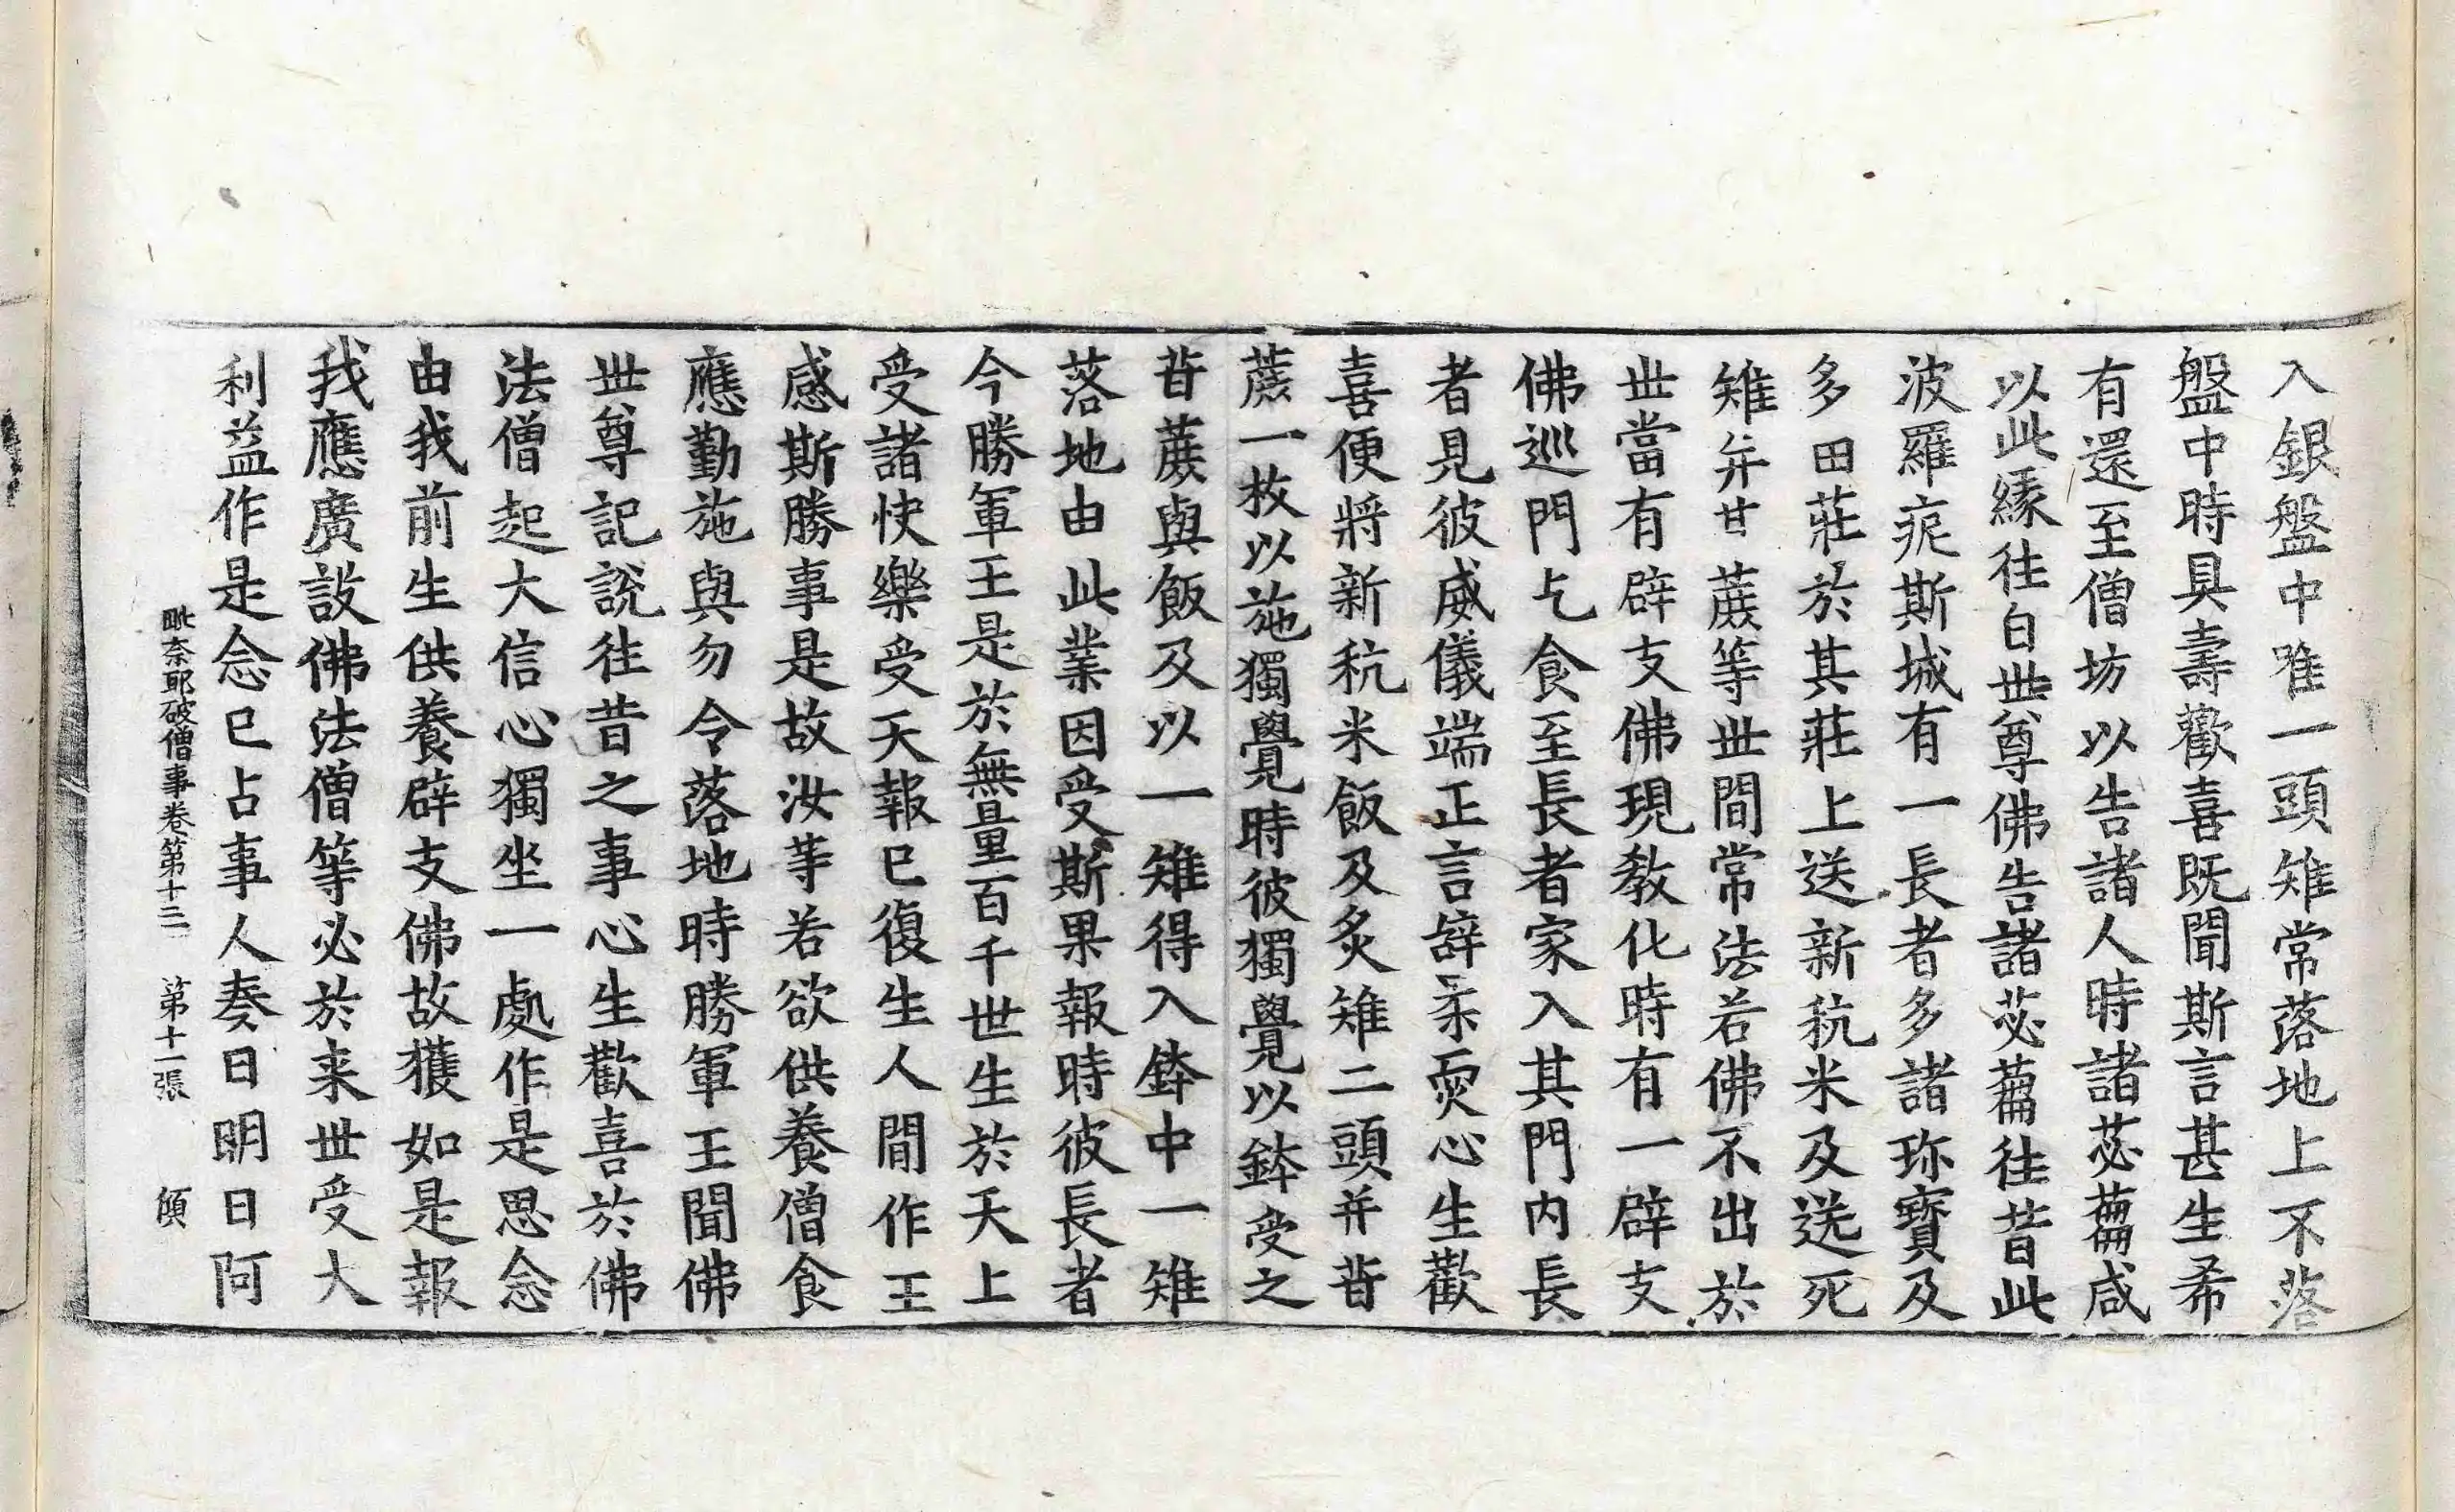 入銀盤中唯一頭雉常落地上不落
盤中時具壽歡喜既聞斯言甚生希
有還至僧坊以告諸人時諸苾蒭咸
以此緣往白世尊佛告諸苾蒭往昔此
波羅痆斯城有一長者多諸珎寶及
多田莊於其莊上送新秔米及送死
雉并甘蔗等世間常法若佛不出於
世當有辟支佛現教化時有一辟支
佛巡門乞食至長者家入其門內長
者見彼威儀端正言辝柔耎心生歡
喜便將新秔米飯及炙雉二頭并苷
蔗一枚以施獨覺時彼獨覺以鉢受之
苷蔗與飯及以一雉得入鉢中一雉
落地由此業因受斯果報時彼長者
今勝軍王是於無量百千世生於天上
受諸快樂受天報已復生人間作王
感斯勝事是故汝等若欲供養僧食
應勤施與勿令落地時勝軍王聞佛
世尊記說往昔之事心生歡喜於佛
法僧起大信心獨坐一處作是思念
由我前生供養辟支佛故獲如是報
我應廣設佛法僧等必於来世受大
利益作是念已占事人奏曰明日阿
毗奈耶破僧事卷第十三 第十一張 頎